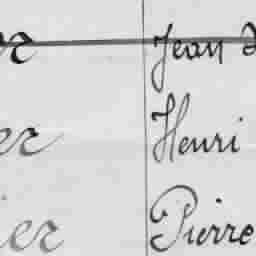 er Jean
er Henri
ier Pierre